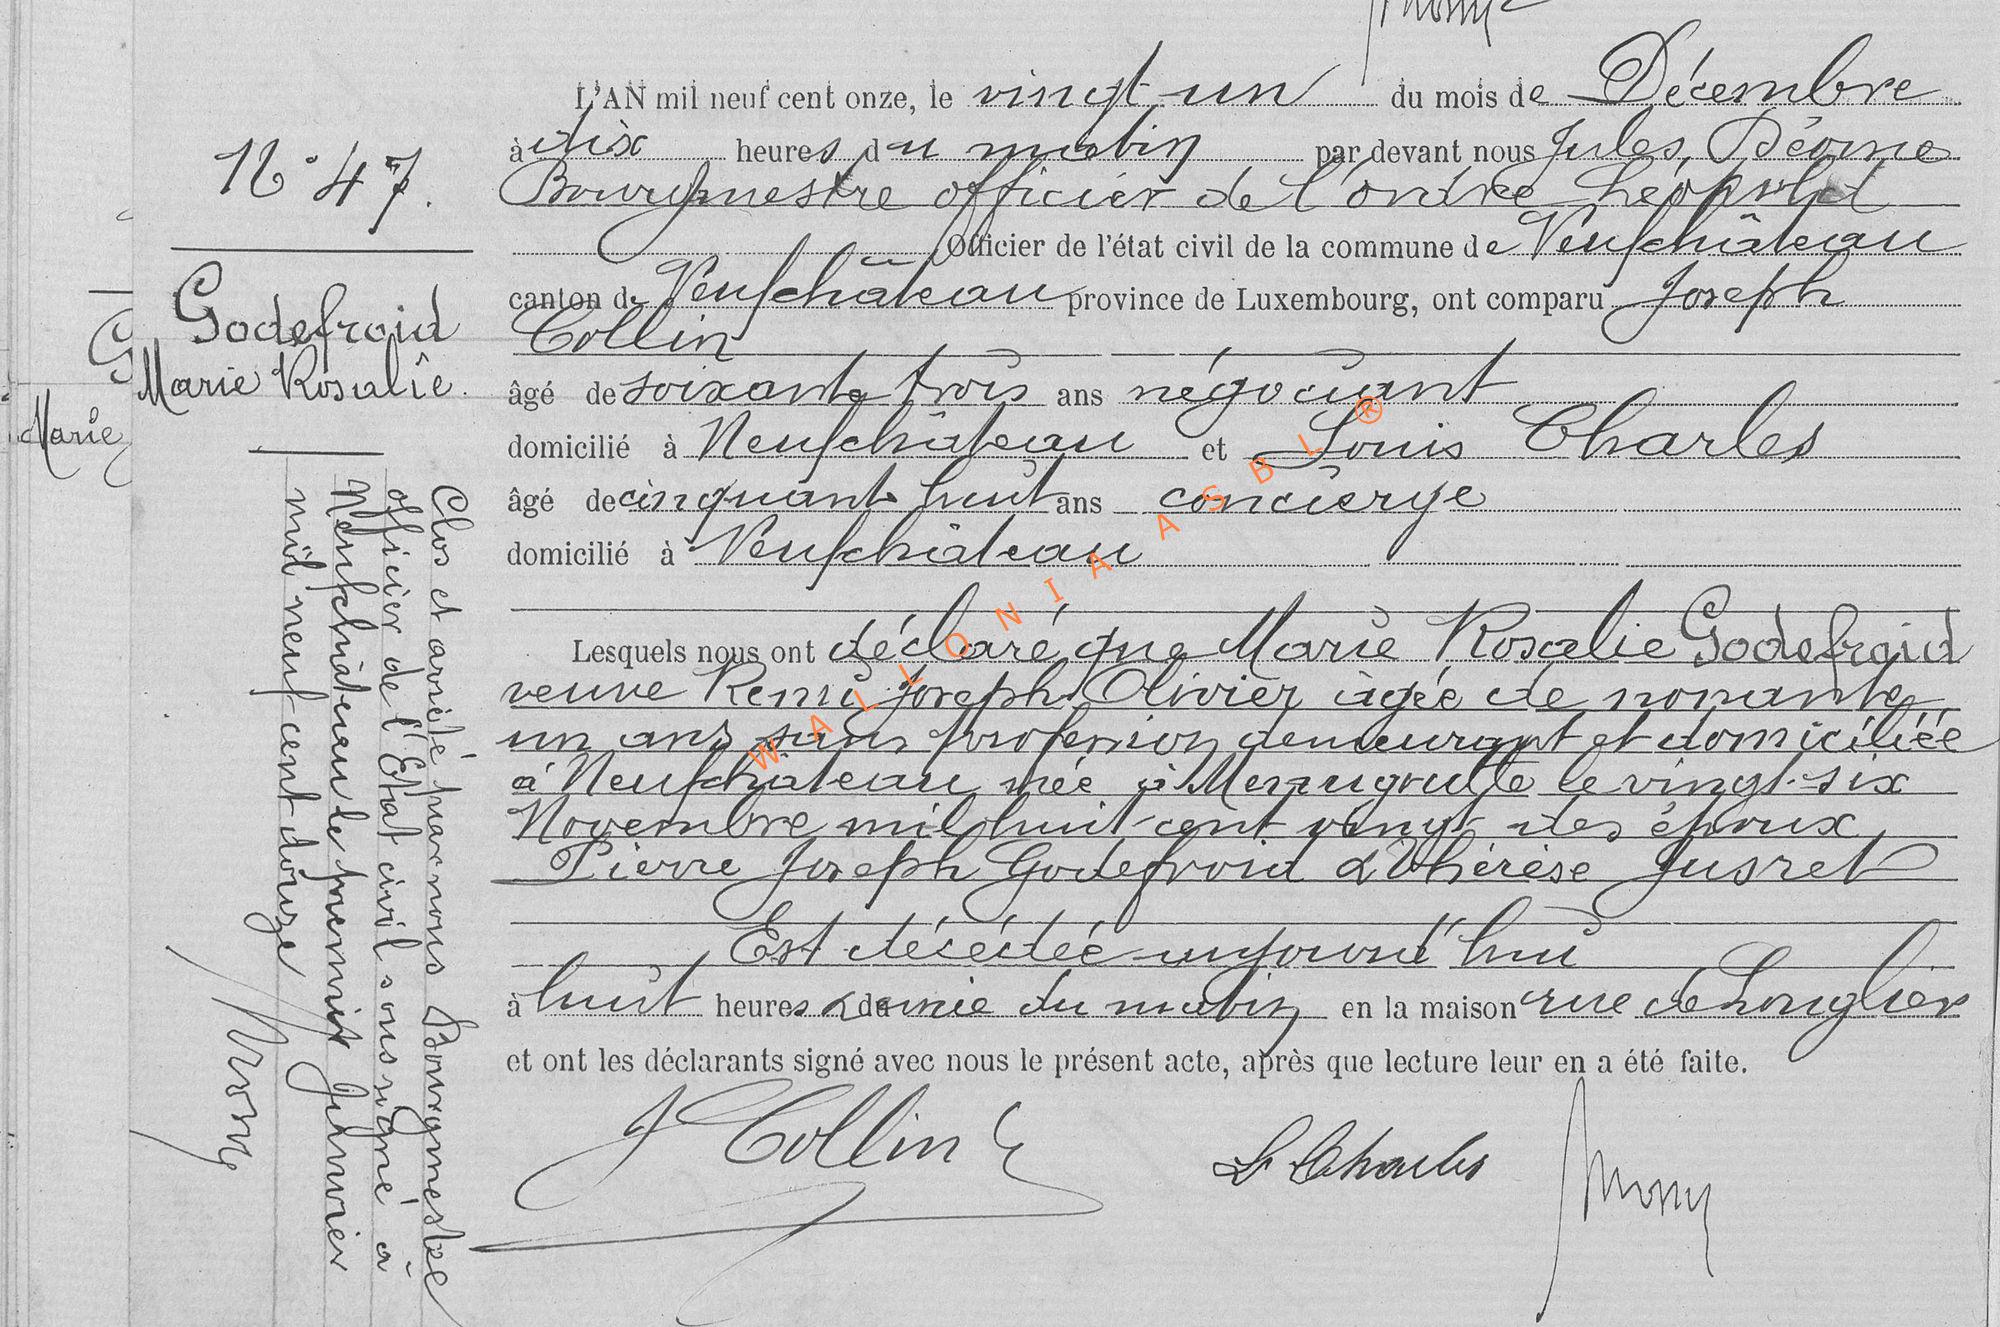 N° 47.
Godefroid
Marie Rosalie.
Marie
L'AN mil neuf cent onze, le vingt un du mois de Décembre
à dix heures du matin par devant nous Jules
Bourgmestre officier de l'ordre Léopold
Officier de l'état civil de la commune de Neufchâteau
canton de Neufchâteau province de Luxembourg, ont comparu Joseph
Collin
âgé de soixante trois ans négociant
domicilié à Neufchâteau et Louis Charles
âgé de cinquante huit ans concierge
domicilié à Neufchâteau
Lesquels nous ont déclaré que Marie Rosalie Godefroid
veuve Remi Joseph Olivier âgée de nonante
un ans sans profession demeurant et domiciliée
à Neufchâteau née à le vingt-six
Novembre mil huit cent vingt des époux
Pierre Joseph Godefroid & Thérèse Jusret
Est décédée aujourd'hui
à huit heures & demie du matin en la maison rue de Longlier
et ont les déclarants signé avec nous le présent acte, après que lecture leur en a été faite.
J Collin
L Charles
Clos et arrêté par nous Bourgmestre
officier de l'Etat civil soussigné à
Neufchâteau le premier Janvier
mil neuf cent douze
WALLONIA ASBL ®